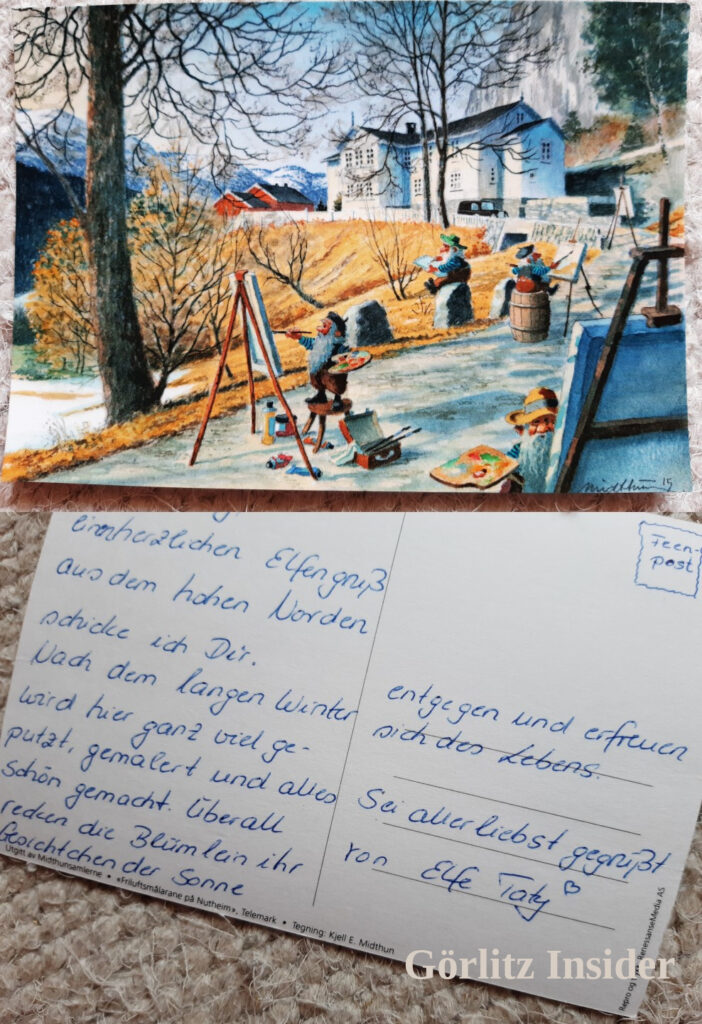 Midthun 15
einen herzlichen Elfengruß
aus dem hohen Norden
schicke ich Dir.
Nach dem langen Winter
wird hier ganz viel ge-
putzt, gemalert und alles
schön gemacht. Überall
recken die Blümlein ihr
Gesichtchen der Sonne
Utgitt av Midthunsamlerne • «Friluftsmålarane på Nutheim», Telemark • Tegning: Kjell E. Midthun
Feen-
post
entgegen und erfreuen
sich des Lebens.
Sei allerliebst gegrüßt
von Elfe Taty
RenessanseMedia AS
Görlitz Insider